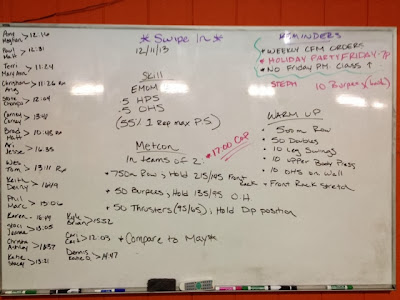 * Swipe In *
12/11/13
Amy
Meghan > 12:16
Paul
Matt > 12:31
Terri
Mary Ann > 11:24
Christian
Ang > 11:26 Rx
> 12:04
Corney
Corey > 13:41
Brad
Matt > 10:45 Rx
Ari
Jesse > 16:35
Wes
Tom > 13:11 Rx
Keith
Danny > 14:19
Phil
Marc > 15:06
Karen > 14:14
Staci
Jeanne > 13:05
Christina
Ashley > 14:37
Katie
Stacey > 13:21
Kyle
Brian > 15:52
Cari
Zach > 12:03
Dennis
Katie O. > 14:47
Skill
EMOM
5 HPS
5 OHS
(55% 1 Rep max P.S)
Metcon
In teams of 2
* 17:00 Cap
• 750m Row, Hold 215/145 front
Rack
• 50 Burpees, Hold 135/95 O.H.
• 50 Thrusters (95/65), Hold Dip position
* Compare to May *
REMINDERS
• WEEKLY CFM ORDERS
• HOLIDAY PARTY FRIDAY 7p
• NO FRIDAY PM CLASS ↑
STEPH 10 Burpees
WARM UP
• 500m Row
• 50 Doubles
• 10 Leg Swings
• 10 Upper Body Press
• 10 OHS on Wall
+ Front Rack Stretch